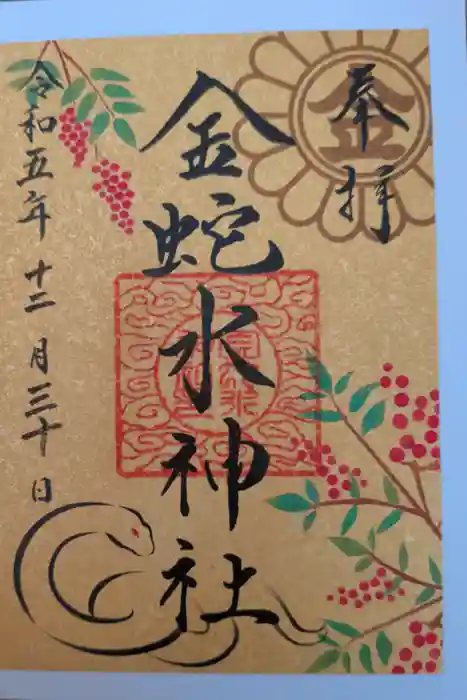 奉拝
金
金蛇水神社
令和五年 十二月三十日